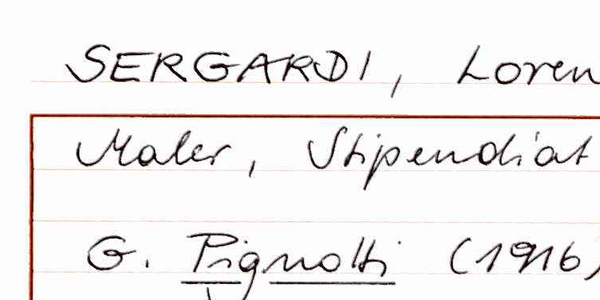 SERGARDI, Loren
Maler, Stipendiat
G. Pignotti (1916)